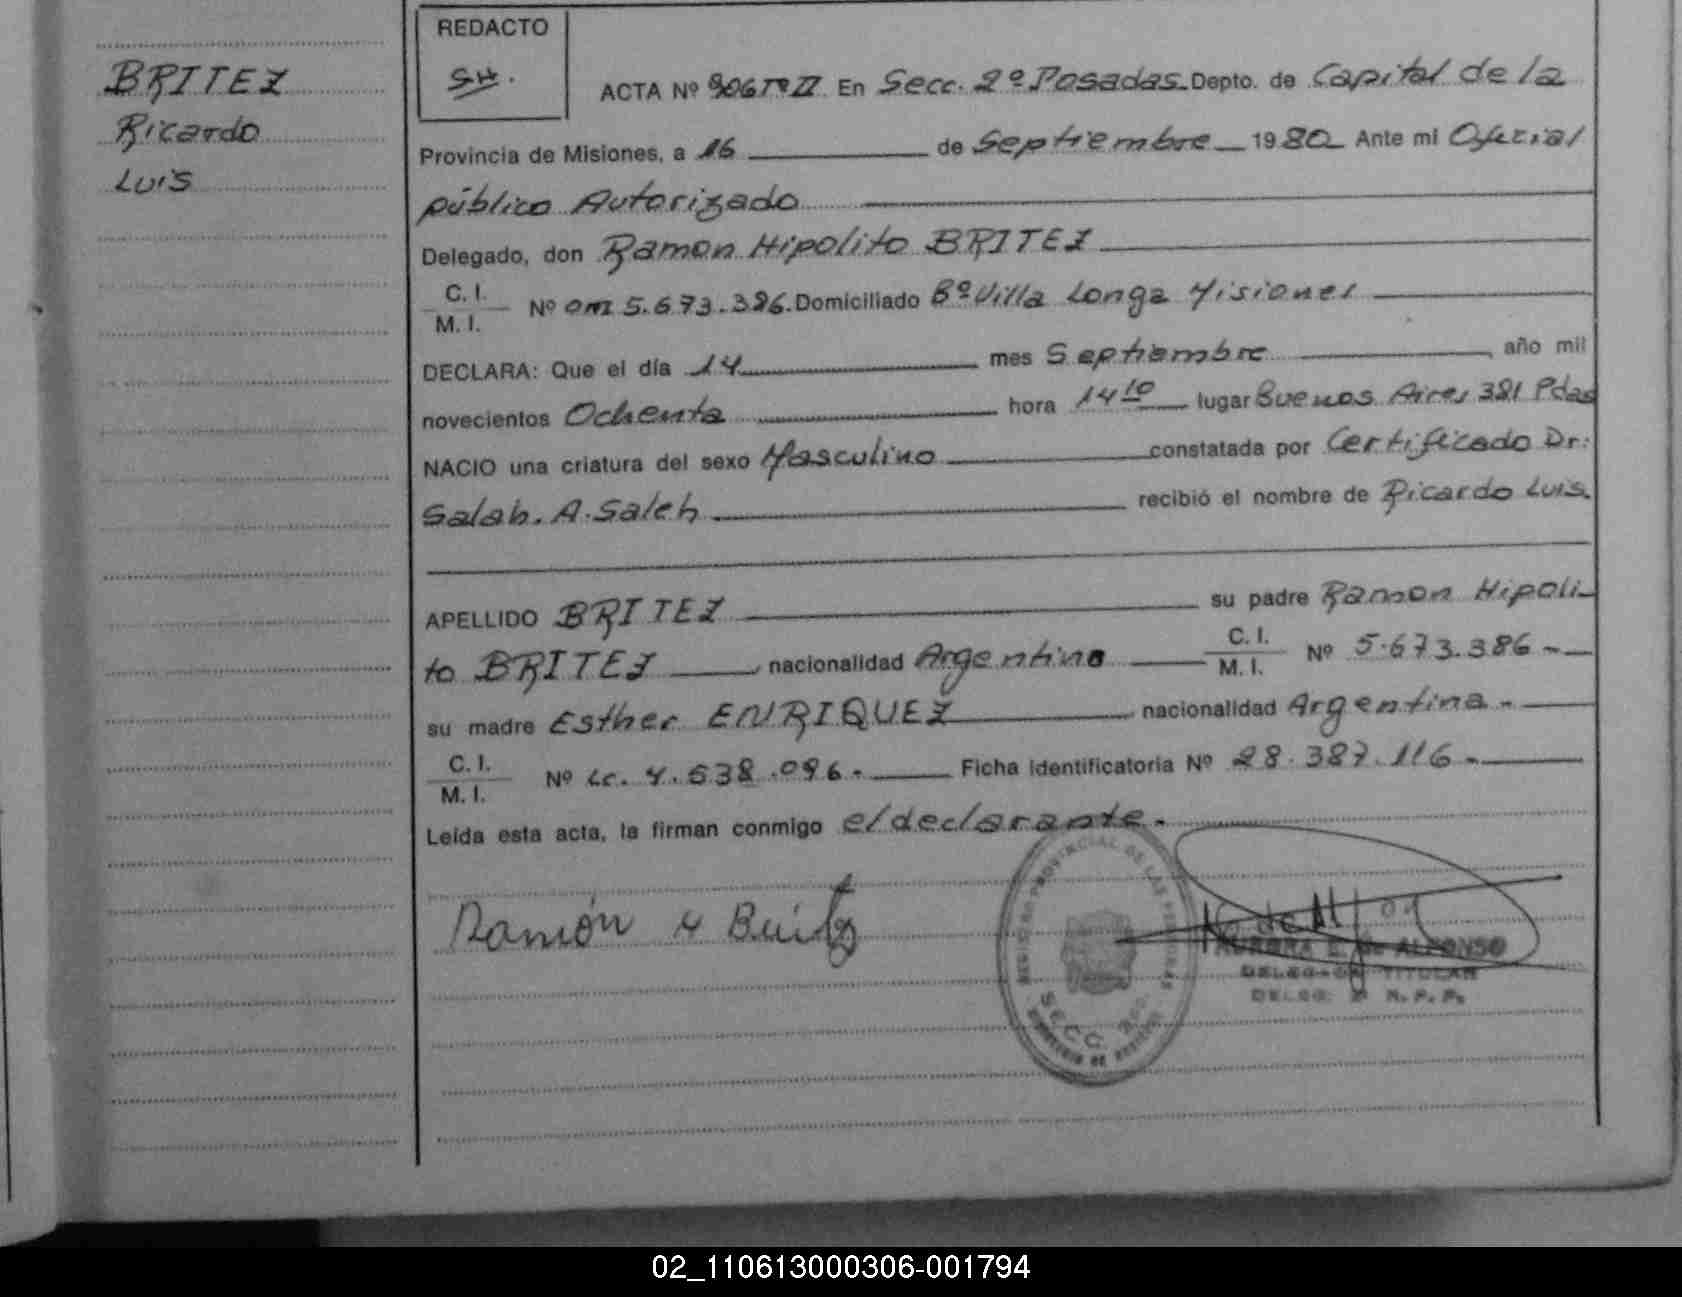 BRITEZ
Ricardo
Luis
REDACTO
SH.
ACTA Nº 906 Tº II En Secc. 2º Posadas. Depto. de Capital de la
Provincia de Misiones, a 16 de Septiembre 1980 Ante mi Oficial
público Autorizado
Delegado, don Ramon Hipolito BRITEZ
C. I.
M. I. Nº DM 5.673.386. Domiciliado Bº Villa Longa Misiones
DECLARA: Que el día 14 mes Septiembre año mil
novecientos Ochenta hora 14 10 lugar Buenos Aires 381 Pdas
NACIO una criatura del sexo Masculino constatada por Certificado Dr:
Salah. A. Saleh recibió el nombre de Ricardo Luis.
APELLIDO BRITEZ su padre Ramon Hipoli-
to BRITEZ, nacionalidad Argentino C. I. M. I. Nº 5.673.386-
su madre Esther ENRIQUEZ, nacionalidad Argentina.-
C. I.
M. I. Nº Lc. 4.638.096.- Ficha identificatoria Nº 28.387.116-
Leída esta acta, la firman conmigo el declarante.
Ramón H Britez
REGISTRO PROVINCIAL DE LAS PERSONAS
SECC. 2da.
E. de ALFONSO
DELEGADA TITULAR
DELEG. R. P. P.
02_110613000306-001794